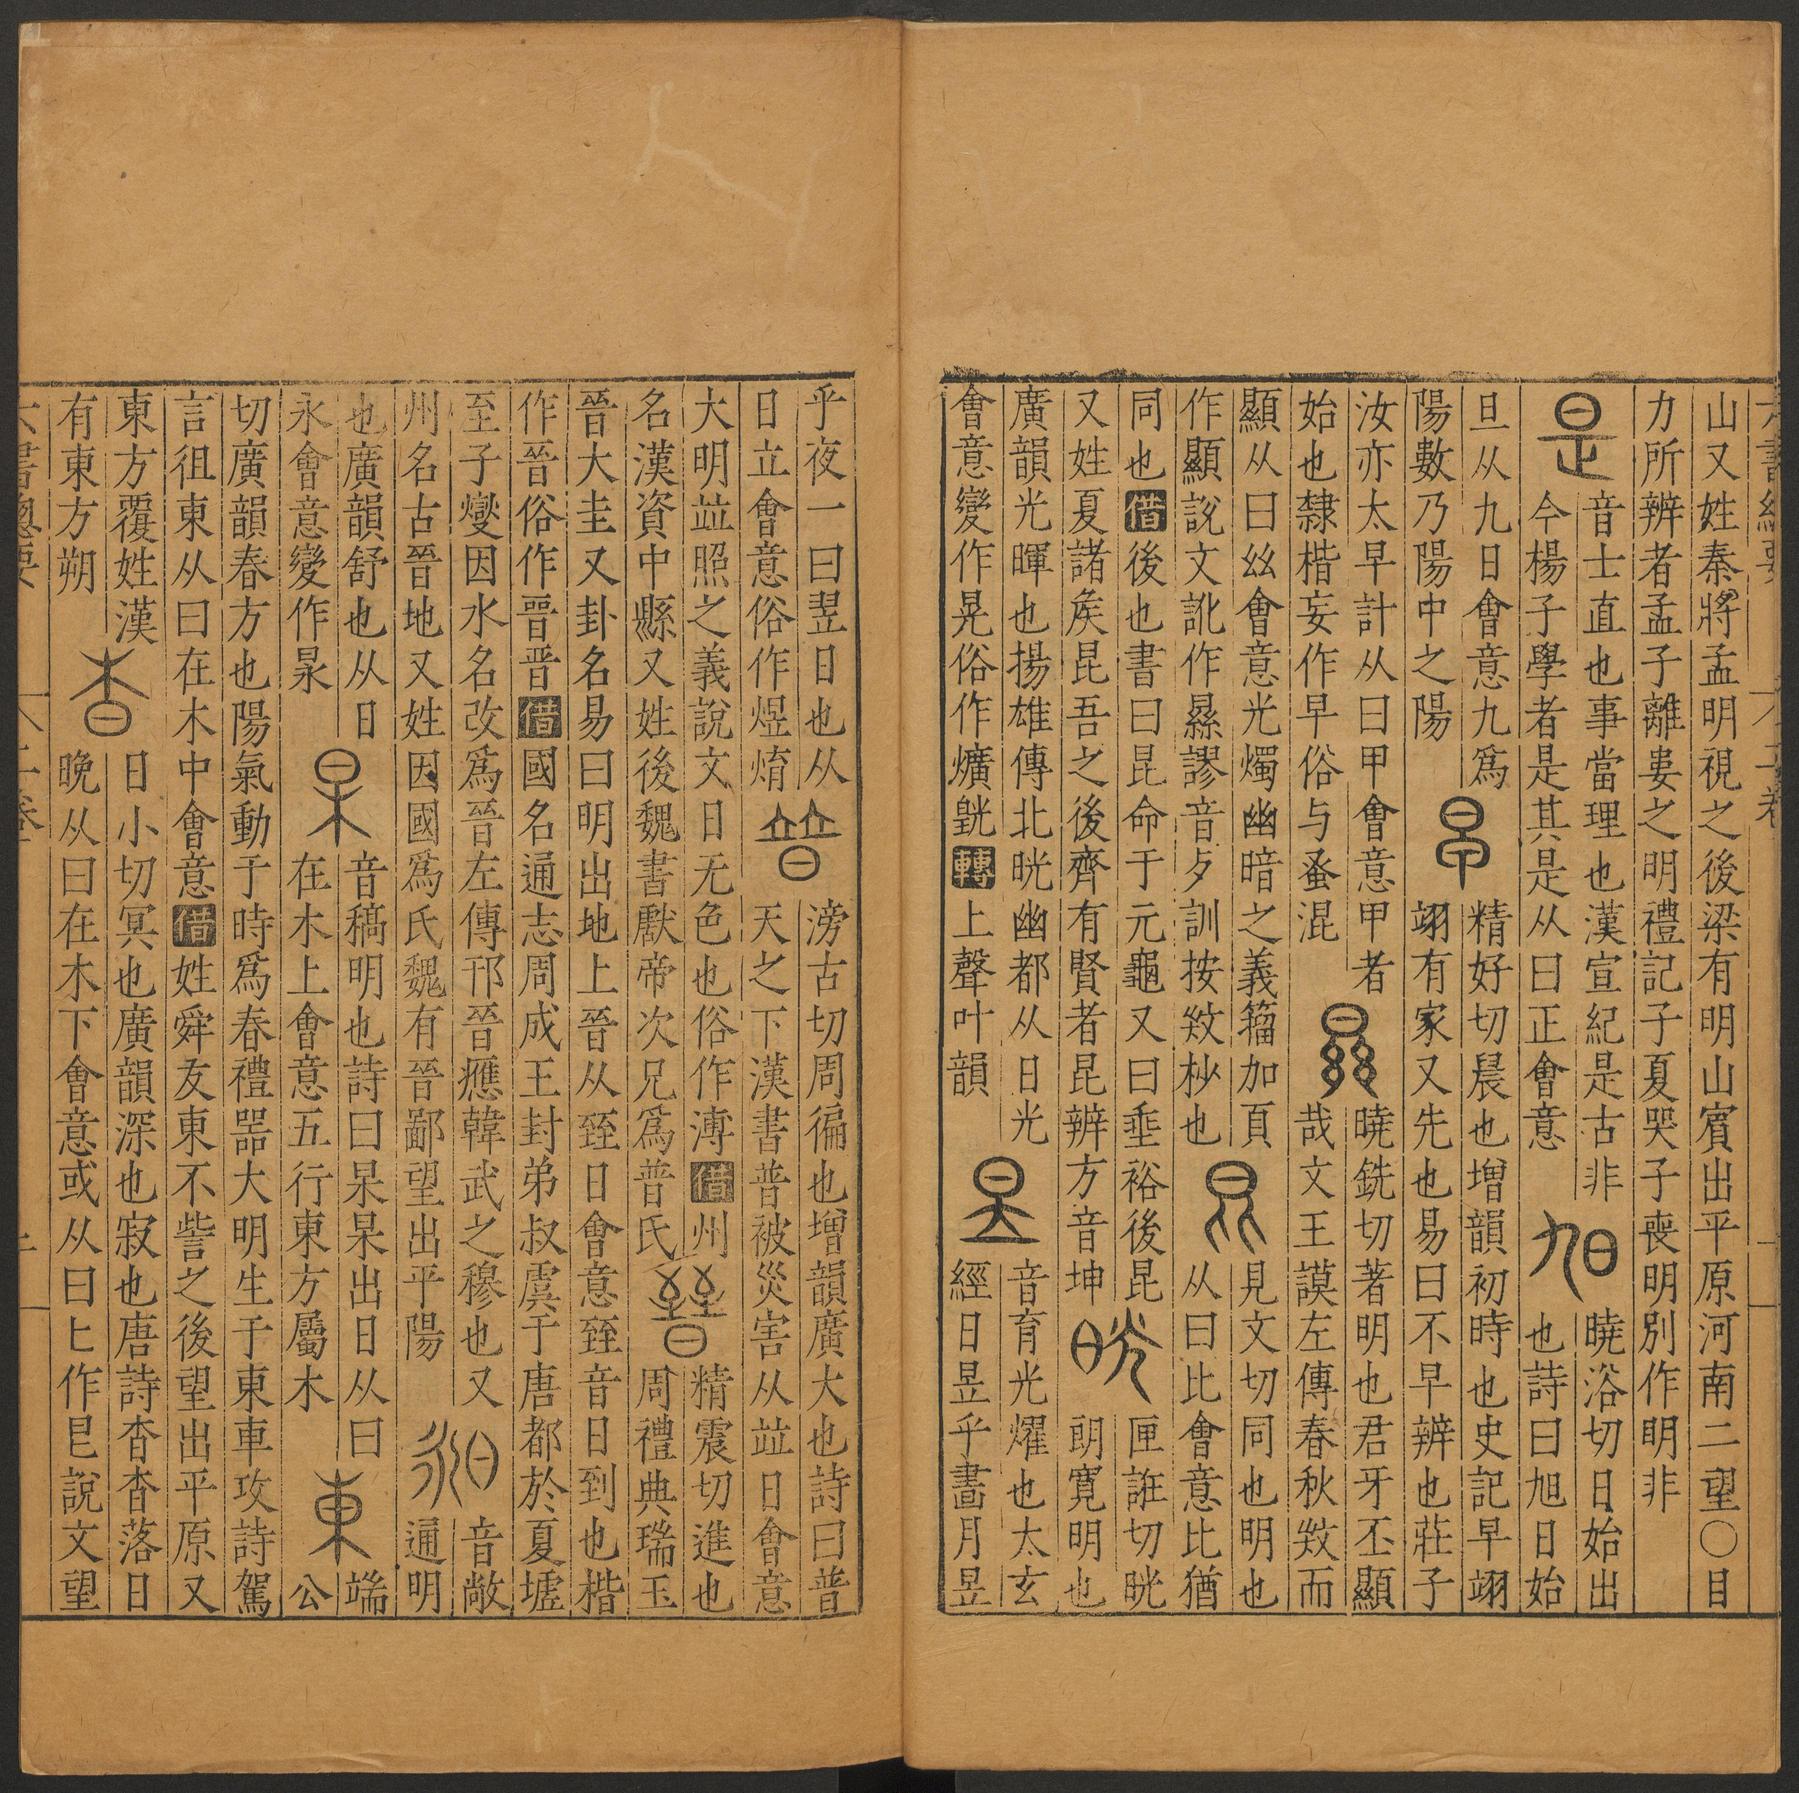 山又姓秦將孟明視之後梁有明山賓出平原河南二望〇目
力所辨者孟子離婁之明禮記子夏哭子喪明別作眀非
是
音士直也事當理也漢宣紀是古非
今楊子學者是其是从日正會意
旭
曉浴切日始出
也詩曰旭日始
旦从九日會意九爲
陽數乃陽中之陽
早
精好切晨也增韻初時也史記早翊
翊有家又先也易曰不早辨也莊子
汝亦太早計从日甲會意甲者
始也隸楷妄作早俗与蚤混
㬎
曉銑切著明也君牙丕顯
哉文王謨左傳春秋而
顯从日𢆶會意光燭幽暗之義籀加頁
作顯說文訛作㬎謬音歺訓按杪也
昆
見文切同也明也
从日比會意比猶
同也借後也書曰昆命于元龜又曰垂裕後昆
又姓夏諸矦昆吾之後齊有賢者昆辨方音坤
晄
匣誑切晄
朗寬明也
廣韻光暉也揚雄傳北晄幽都从日光
會意變作晃俗作爌皝轉上聲叶韻
昱
音育光燿也太玄
經日昱乎晝月昱
乎夜一曰翌日也从
日立會意俗作煜焴
普
滂古切周徧也增韻廣大也詩曰普
天之下漢書普被災害从竝日會意
大明竝照之義說文日无色也俗作溥借州
名漢資中縣又姓後魏書獻帝次兄爲普氏
晉
精震切進也
周禮典瑞玉
晉大圭又卦名易曰明出地上晉从臸日會意臸音日到也楷
作晉俗作晋借國名通志周成王封弟叔虞于唐都於夏墟
至子燮因水名改爲晉左傳邘晉應韓武之穆也又
州名古晉地又姓因國爲氏魏有晉鄙望出平陽
昶
音敞
通明
也廣韻舒也从日
永會意變作昹
杲
音稿明也詩曰杲杲出日从日
在木上會意五行東方屬木
東
端
公
切廣韻春方也陽氣動于時爲春禮器大明生于東車攻詩駕
言徂東从日在木中會意借姓舜友東不訾之後望出平原又
東方覆姓漢
有東方朔
杳
日小切冥也廣韻深也寂也唐詩杳杳落日
晩从日在木下會意或从日匕作㫐說文望
六書總要